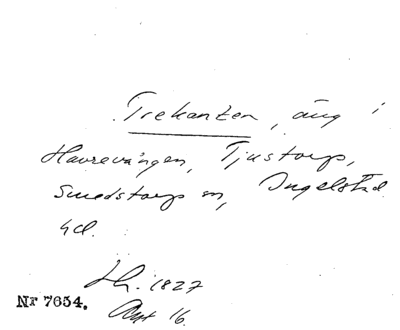 Trekanten, äng i
Havrevången, Tjustorp,
Smedstorps sn, Ingelstad
hd.
Lh. 1827
Nr 7654.
Akt 16